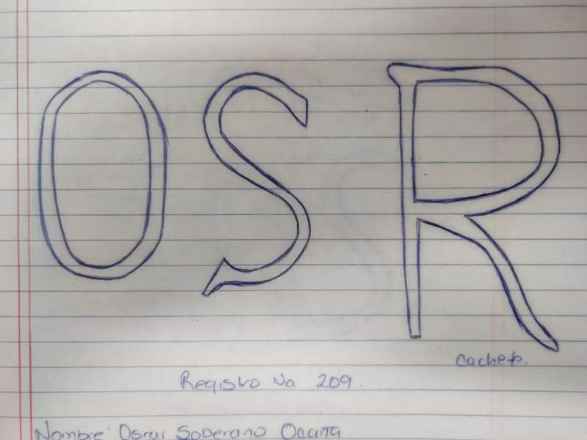 O S R
cachete.
Registro Na 209.
Nombre: Oscar Soberano Ocaña